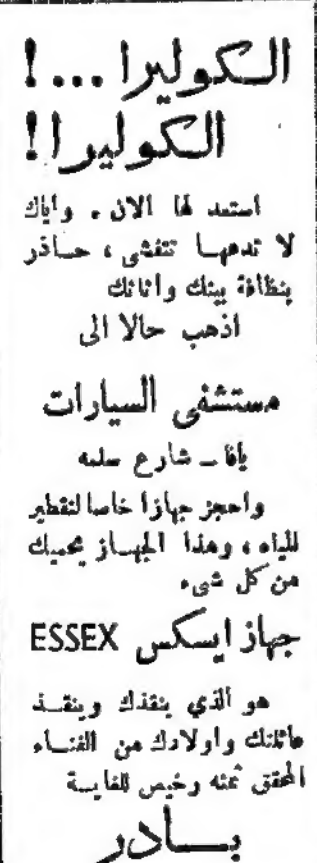 الكوليرا ... !
الكوليرا !
استعد لها الان . واياك
لا تدعهـا تتفشى ، حـاذر
بنظافة بيتك واثاثك
اذهب حالا الى
مستشفى السيارات
يافا ــ شارع سلمه
واحجز جهازا خاصا لتقطير
المياه ، وهذا الجهـاز يحميك
من كل شىء
جهاز ايسكس ESSEX
هو الذي ينقذك وينقـذ
عائلتك واولادك من الفنـاء
المحقق ثمنه رخيص للغايـة
بــادر